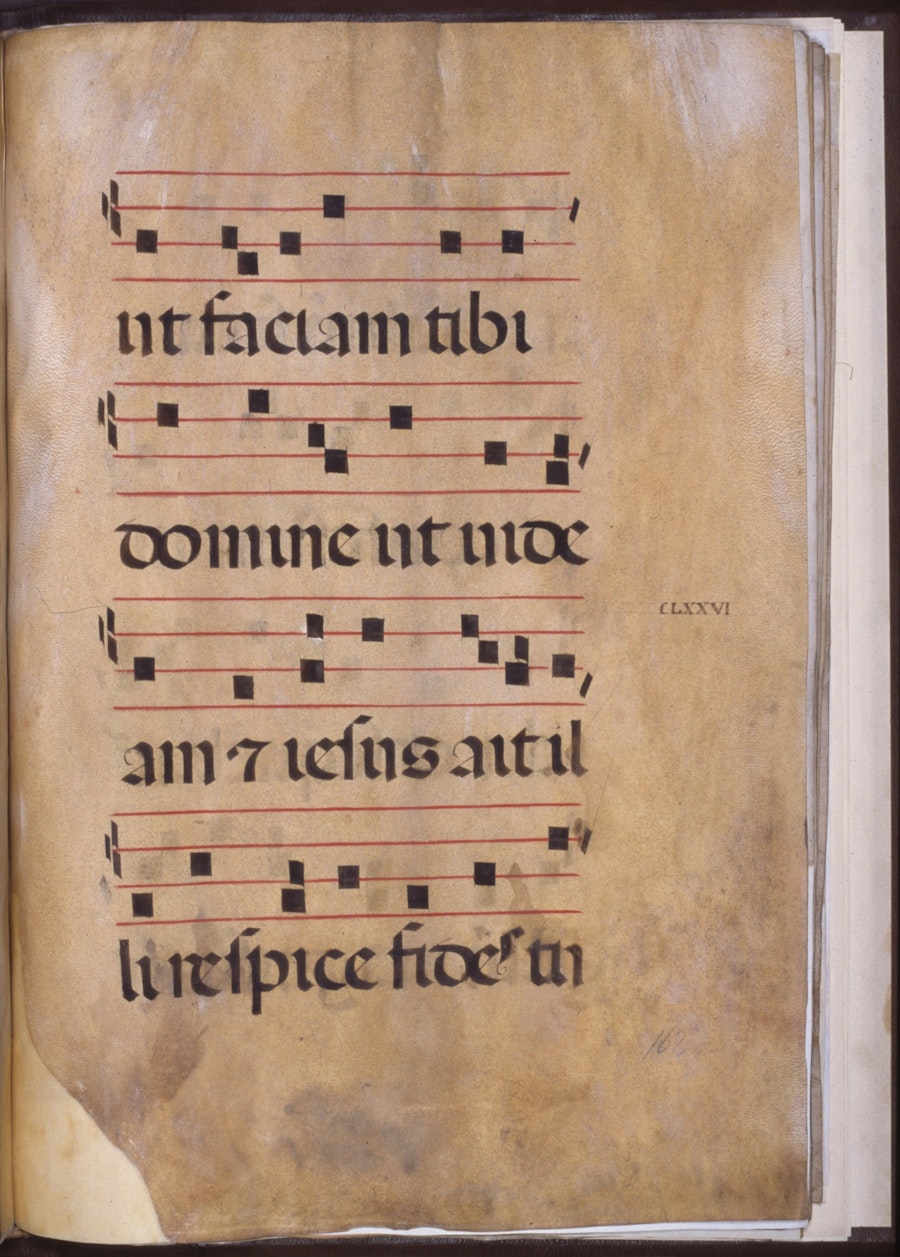 ut faciam tibi
domine ut uide
am ⁊ iesus ait il
CLXXVI
li respice fides tu